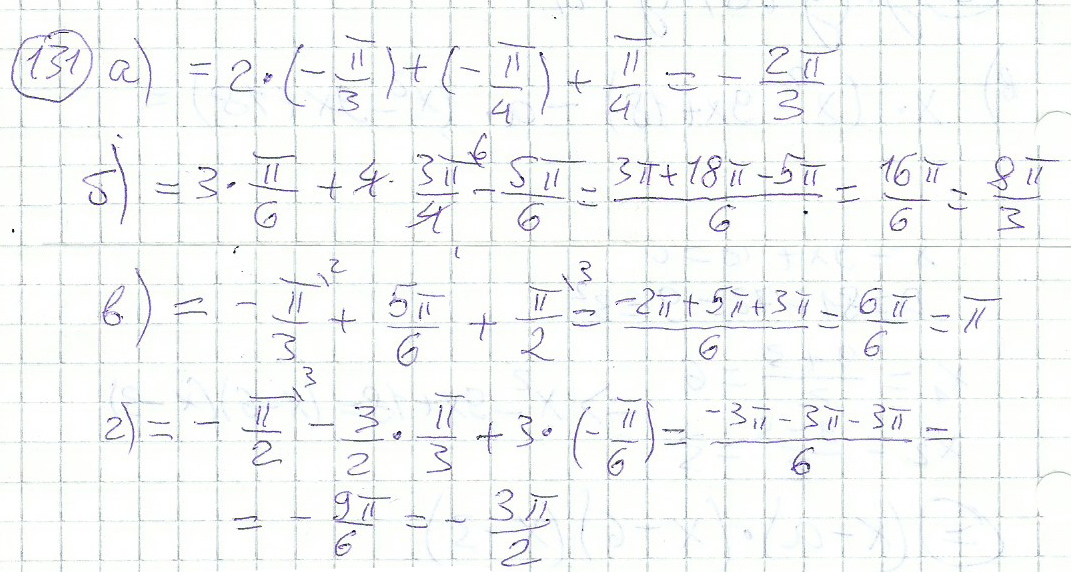 131 а) = 2·(-π/3)+(-π/4)+π/4 = -2π/3
б) = 3·π/6 + 4·3π/4\6 - 5π/6 = (3π+18π-5π)/6 = 16π/6 = 8π/3
в) = -π/3\2 + 5π/6\1 + π/2\3 = (-2π+5π+3π)/6 = 6π/6 = π
г) = -π/2\3 - 3/2·π/3 + 3·(-π/6) = (-3π-3π-3π)/6 =
= -9π/6 = -3π/2